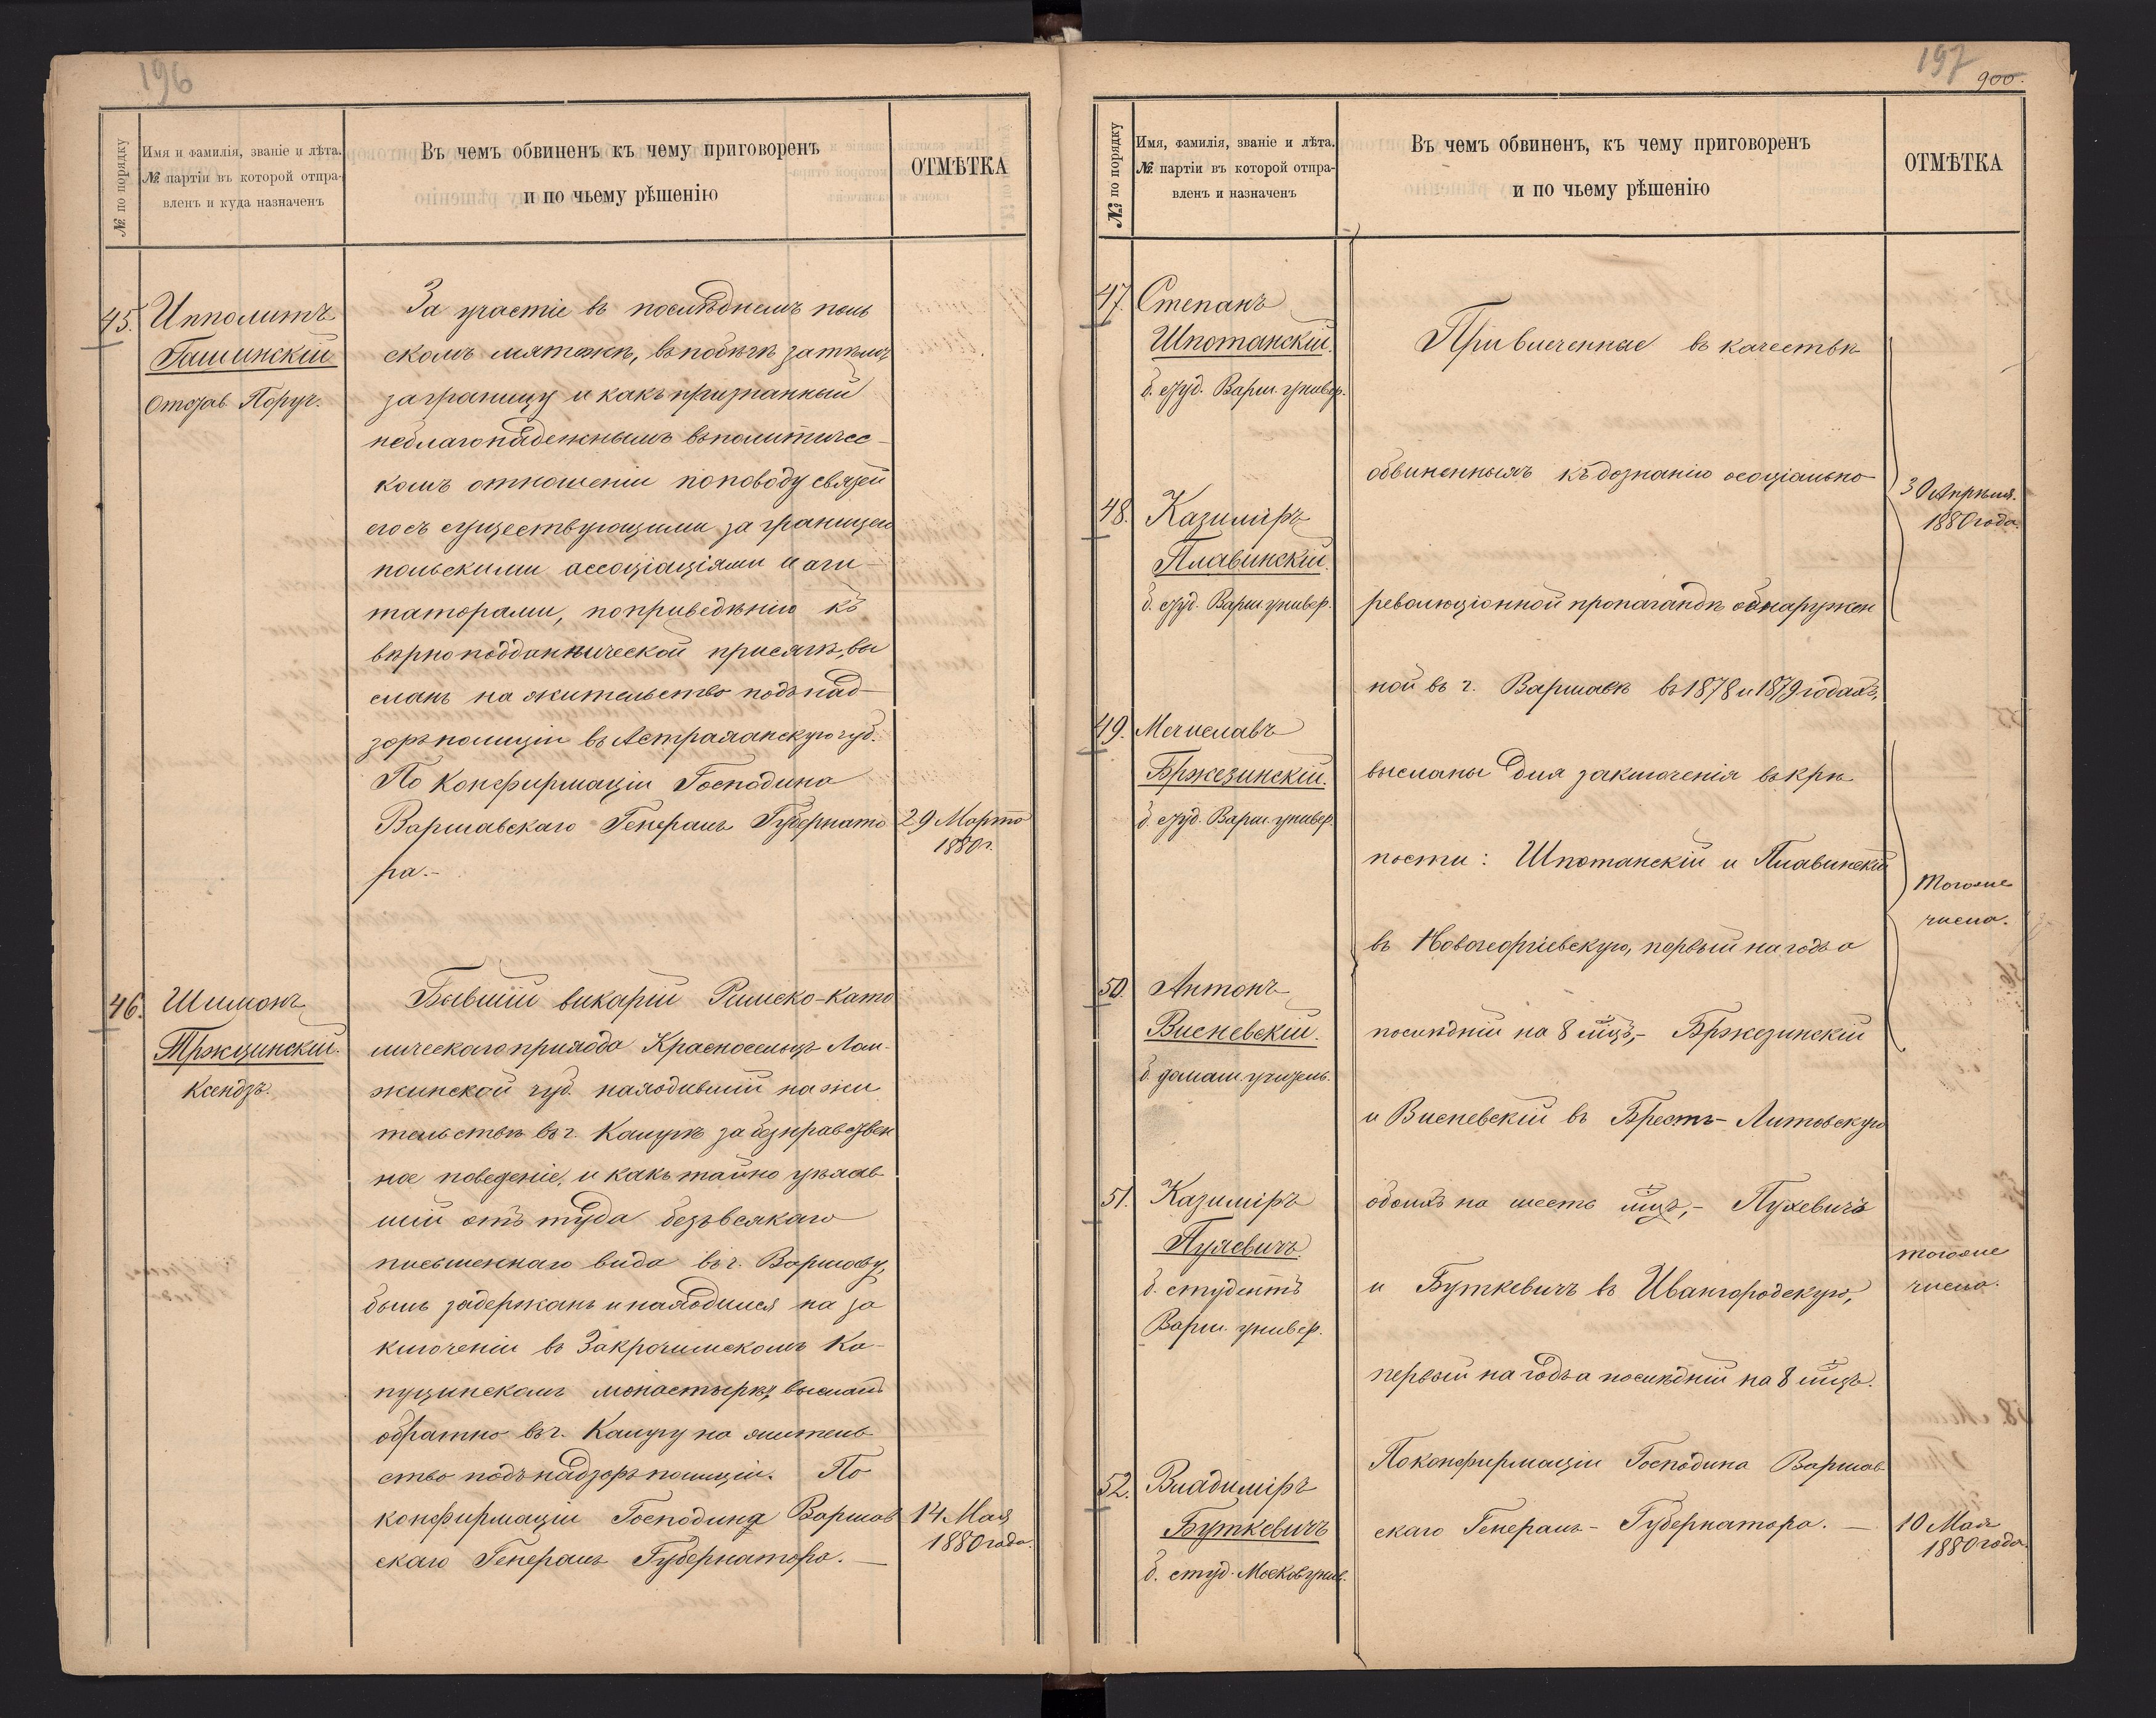 196
№ по порядку
Имя и фамилія, званіе и лѣта.
№ партіи въ которой отпра-
вленъ и куда назначенъ
Въ чемъ обвиненъ къ чему приговоренъ
и по чьему рѣшенію
ОТМѢТКА
45. Ипполитъ
Гашинскій
Отстав. Поруч.
За участіе въ послѣднемъ поль
скомъ мятежѣ, въ побѣгѣ затѣмъ
за границу и какъ признанный
неблагонадежнымъ въ политичес-
комъ отношеніи по поводу связей
его съ существующими за границей
польскими ассоціаціями и аги-
таторами, по приведѣнію къ
вѣрноподданнической присягѣ, вы
сланъ на жительство подъ над-
зоръ полиціи въ Астраханскую губ.
По конфирмаціи Господина
Варшавскаго Генералъ Губернато
ра.-
29 Марта
1880 г.
46. Шимонъ
Тржцинскій.
Ксендзъ.
Бывшій викарій Римско-като
лическаго прихода Красносельцъ Лом-
жинской губ. находившій на жи
тельствѣ въ г. Калугѣ за безнравствен
ное поведеніе, и какъ тайно уѣхав
шій отъ туда безъ всякаго
письменнаго вида въ г. Варшаву,
былъ задержанъ и находился на за
ключеніи въ Закрочимскомъ Ка-
пуцинскомъ монастырѣ, высланъ
обратно въ г. Калугу на житель
ство подъ надзоръ полиціи. По
конфирмаціи Господина Варшав
скаго Генералъ Губернатора. —
14 Мая
1880 года.
197
900.
№ по порядку
Имя, фамилія, званіе и лѣта.
№ партіи въ которой отпра-
вленъ и назначенъ
Въ чемъ обвиненъ, къ чему приговоренъ
и по чьему рѣшенію
ОТМѢТКА
47. Степанъ
Шпотанскій.
б. студ. Варш. универ.
48. Казиміръ
Плавинскій.
б. студ. Варш. универ.
49. Мечиславъ
Бржезинскій.
б. студ. Варш. универ.
50. Антонъ
Висневскій.
б. домаш. учитель.
51. Казиміръ
Пухевичъ.
б. студентъ
Варш. универ.
52. Владиміръ
Буткевичъ
б. студ. Москов. унив.
Привлеченные въ качествѣ
обвиненныхъ къ дознанію о соціально
революціонной пропагандѣ обнаружен
ной въ г. Варшавѣ въ 1878 и 1879 годахъ,
высланы для заключенія въ крѣ
пости: Шпотанскій и Плавинскій
въ Новогеоргіевскую, первый на годъ а
послѣдній на 8 мцъ,- Бржезинскій
и Висневскій въ Брестъ-Литовскую
обоихъ на шесть мцъ,- Пухевичъ
и Буткевичъ въ Ивангородскую,
первый на годъ а послѣдній на 8 мцъ.
По конфирмаціи Господина Варшав
скаго Генералъ-Губернатора. —
30 Апрѣля.
1880 года.
того же
числа.
того же
числа.
10 Мая
1880 года.